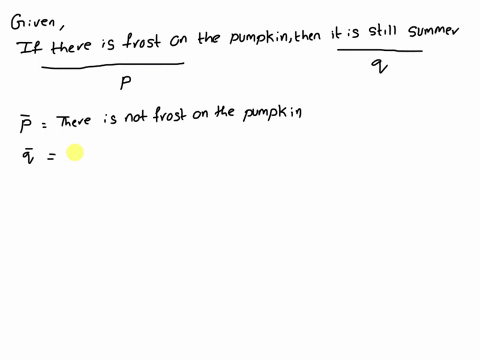 Given,
If there is frost on the pumpkin, then it is still summer
P q
p̄ = There is not frost on the pumpkin
q̄ =